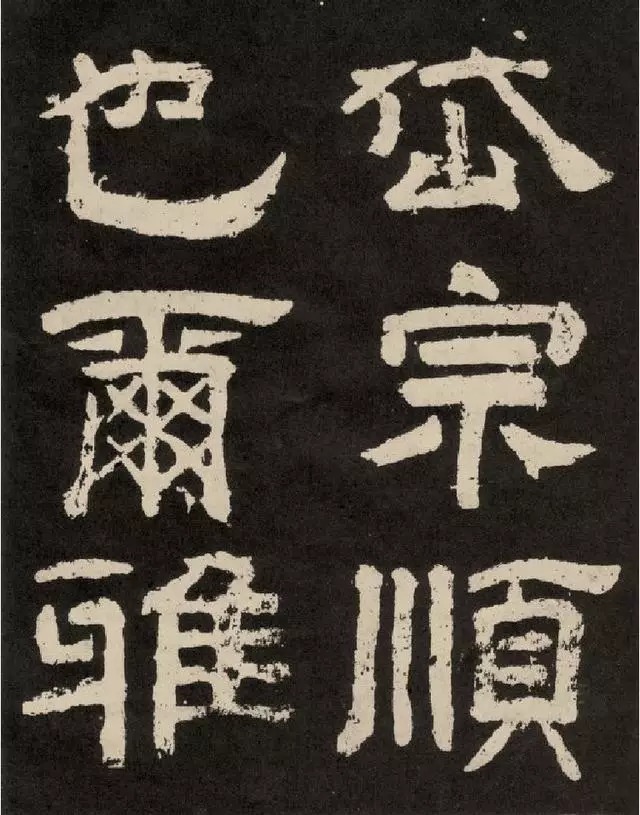 岱宗順
也爾雅